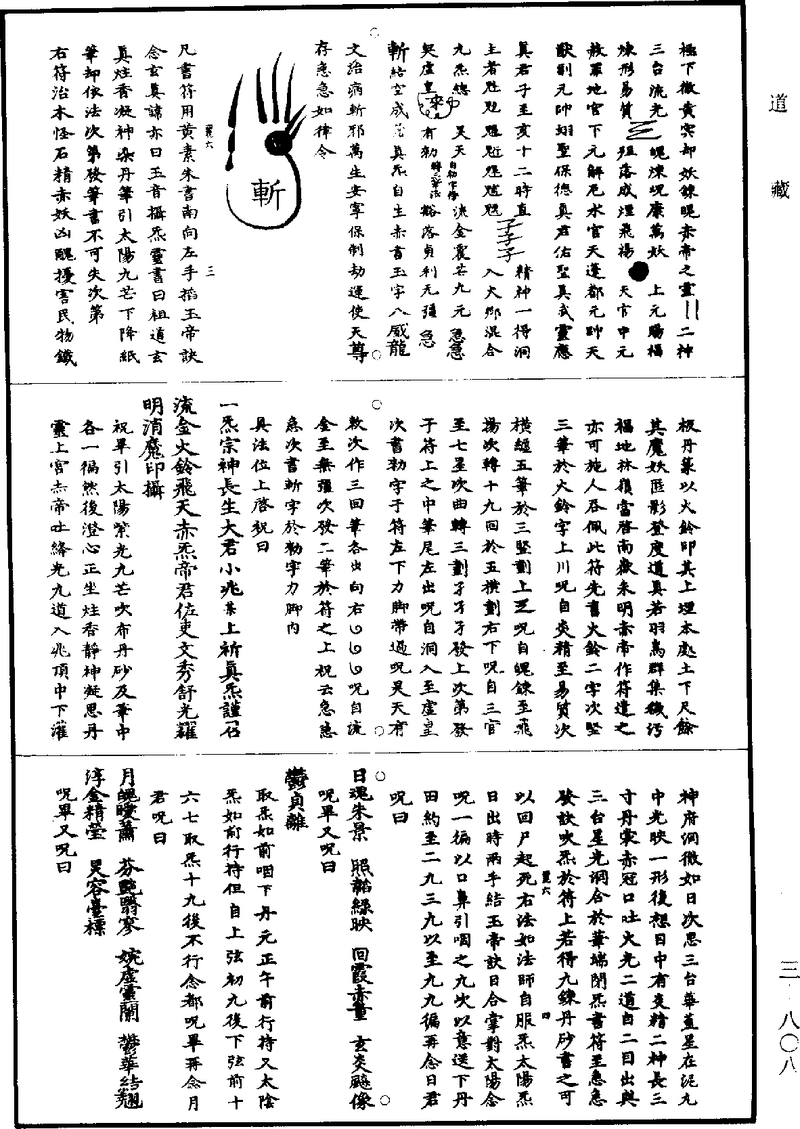 道藏
極下徹黃寧却妖鍊魂赤帝之靈二神
三台流光　魄煉堄康萬妖　上元賜福
煉形易質　殂落成煙飛揚　天官中元
赦罪地官下元解厄水官天蓬都元帥天
猷副元帥翊聖保德真君佑聖真武靈應
真君子至亥十二時直　精神一得洞
主者　入大鄉混合
九炁總　昊天　流金震芒九元　急急
契虛皇　有勑　豁落貞利元　急
斬結空成　真炁自生赤書玉字八威龍
文治病斬邪萬生安寧保制劫運使天尊
存急急如律令
斬
凡書符用黃素朱書南向左手掐玉帝訣
念玄真諱亦曰玉音攝炁靈書曰祖道玄
真炷香凝神染丹筆引太陽九芒下降紙
筆却依法次第發筆書不可失次第
右符治木怪石精赤妖凶醜擾害民物鐵
板丹篆以火鈴印其上埋本處土下尺餘
其魔妖匿影登度道真若羽鳥群集穢污
福地林嶺當啓南嶽朱明赤帝作符遣之
亦可施人吞佩此符先書火鈴二字次堅
三筆於火鈴字上川呪自炎精至易質次
橫纏五筆於三竪劃上　呪自魄鍊至飛
揚次轉十九回於五橫劃右下呪自三官
至七星次曲轉三劃　發上次第發
于符上之中筆尾左出呪自洞入至虛皇
次書勑字于符左下力脚帶過呪昊天有
勑次作三回筆各出向右　呪自流
金至無彊次發二筆於符之上祝云急急
急次書斬字於勑字力脚內
具法位上啓祝曰
一炁宗神長生大君小兆某上祈真炁謹召
流金火鈴飛天赤炁帝君位吏文秀舒光耀
明消魔印攝
祝畢引太陽紫光九芒吹布丹砂及筆中
各一徧然後澄心正坐炷香靜神凝思丹
靈上宮赤帝吐絳光九道入兆頂中下灌
神府洞徹如日次思三台華蓋星在泥丸
中光映一形後想目中有炎精二神長三
寸丹裳赤冠口吐火光二道自二目出與
三台星光洞合於筆端閉炁書符至急急
發訣吹炁於符上若得九鍊丹砂書之可
以回尸起死右法如法師自服炁太陽炁
日出時兩手結玉帝訣日合掌對太陽念
呪一徧以口鼻引咽之九次以意送下丹
田約至二九三九以至九九徧再念日君
呪曰
日魂朱景　照韜綠映　回霞赤童　玄炎飈像
呪畢又呪曰
鬱貞離
取炁如前咽下丹元正午前行持又太陰
炁如前行持但自上弦初九後下弦前十
六七取炁十九後不行念都呪畢再念月
君呪曰
月魄曖蕭　芬艷翳寥　婉虛靈蘭　鬱華結翹
淳金精瑩　炅容臺標
呪畢又呪曰
三·八〇八